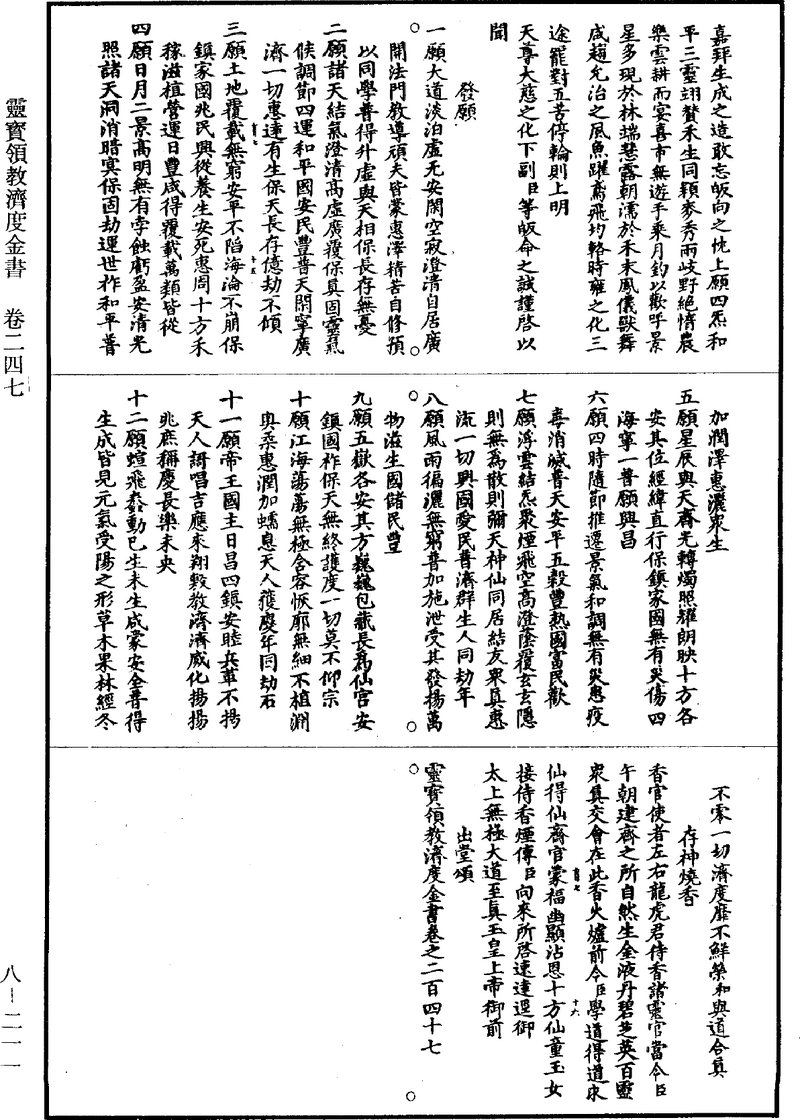 嘉拜生成之造敢忘皈向之忱上願四炁和
平三靈翊贊禾生同穎麥秀兩岐野絕惰農
樂雲耕而宴喜市無遊手乘月釣以歡呼景
星多現於林瑞慧露朝濡於禾末風儀獸舞
咸趨允治之風魚躍鳶飛均輅時雍之化三
途罷對五苦停輪則上明
天尊大慈之化下副臣等皈命之誠謹啓以
聞
發願
一願大道淡泊虛无安閑空寂澄清自居廣
開法門教導頑夫皆蒙惠澤精苦自修預
以同學普得升虛與天相保長存無憂
二願諸天結氣澄清高虛廣覆保真固靈氣
候調節四運和平國安民豐普天閑寧廣
濟一切惠逮有生保天長存億劫不傾
三願土地覆載無窮安平不陷海淪不崩保
鎮家國兆民興從養生安死惠周十方禾
稼滋植營運日豐咸得覆載萬類皆從
四願日月二景高明無有孛蝕虧盈安清光
照諸天洞消暗寞保固劫運世祚和平普
加潤澤惠灑眾生
五願星辰與天齊光轉燭照耀朗映十方各
安其位經緯直行保鎮家國無有災傷四
海寧一普願興昌
六願四時隨節推遷景氣和調無有災患疫
毒消滅普天安平五穀豐熟國富民歡
七願浮雲結炁聚煙飛空高澄蔭覆玄玄隱
則無為散則彌天神仙同居結友眾真惠
流一切興國愛民普濟群生人同劫年
八願風雨徧灑無窮普加施泄受其發揚萬
物滋生國儲民豐
九願五嶽各安其方巍巍包藏長為仙宮安
鎮國祚保天無終護度一切莫不仰宗
十願江海蕩蕩無極含容恢廓無細不植淵
奧桑惠潤加蠕息天人獲慶年同劫石
十一願帝王國主日昌四鎮安睦兵革不揚
天人謌唱吉應來翔敷教濟濟威化揚揚
兆庶稱慶長樂未央
十二願蝖飛蠢動已生未生咸蒙安全普得
生成皆見元氣受陽之形草木果林經冬
不零一切濟度靡不鮮榮和與道合真
存神燒香
香官使者左右龍虎君侍香諸靈官當令臣
午朝建齋之所自然生金液丹碧芝英百靈
眾真交會在此香火爐前令臣學道得道求
仙得仙齋官蒙福幽顯沾恩十方仙童玉女
接侍香煙傳臣向來所啓速達逕御
太上無極大道至真玉皇上帝御前
出堂頌
靈寶領教濟度金書卷之二百四十七
十五
十六
靈寶領教濟度金書 卷二四七
八－二一一